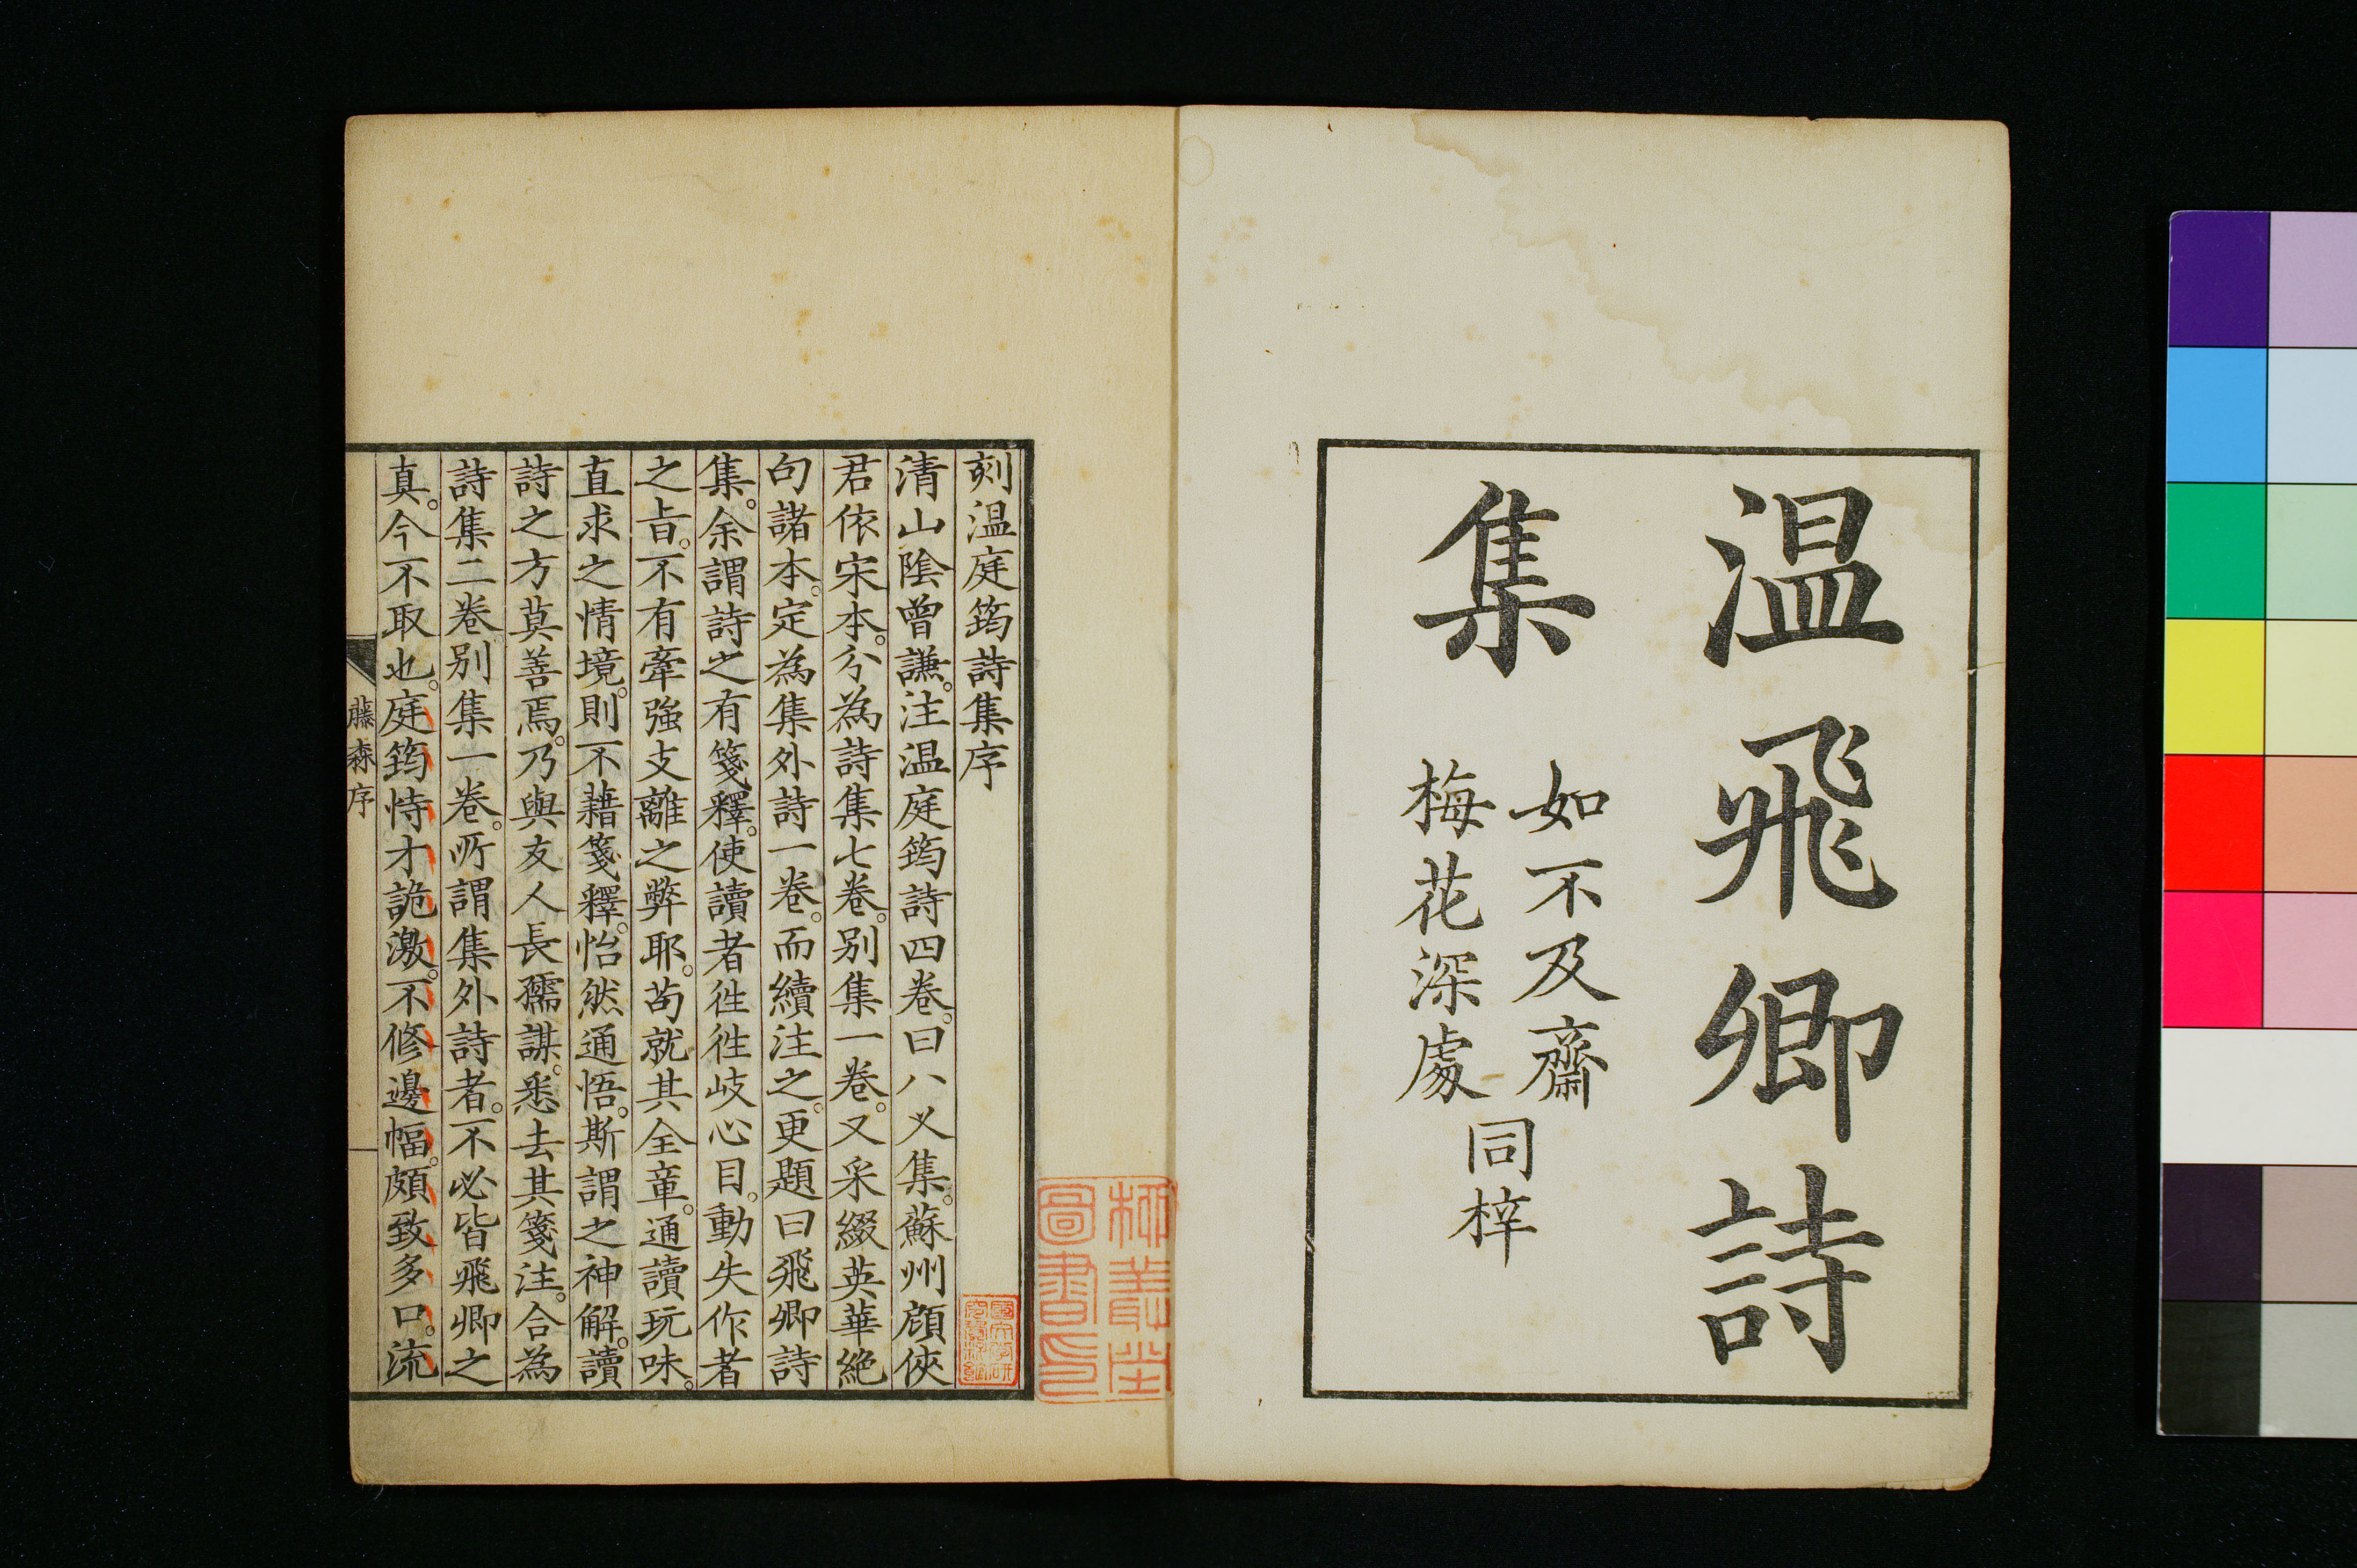 温飛卿詩
集
如不及齋
梅花深處
同梓
刻温庭筠詩集序
清山陰曾謙。注温庭筠詩四卷。曰八乂集。蘇州顧俠
君依宋本。分為詩集七卷。别集一卷。又采綴英華絶
句諸本。定為集外詩一卷。而續注之。更題曰飛卿詩
集。余謂詩之有箋釋。使讀者徃徃岐心目。動失作者
之旨。不有牽強支離之弊耶。苟就其全章。通讀玩味。
直求之情境。則不藉箋釋。怡然通悟。斯謂之神解。讀
詩之方莫善焉。乃與友人長孺謀。悉去其箋注。合為
詩集二卷别集一卷。所謂集外詩者。不必皆飛卿之
真。今不取也。庭筠恃才詭激。不修邊幅。頗致多口。流
藤森序
圖書印